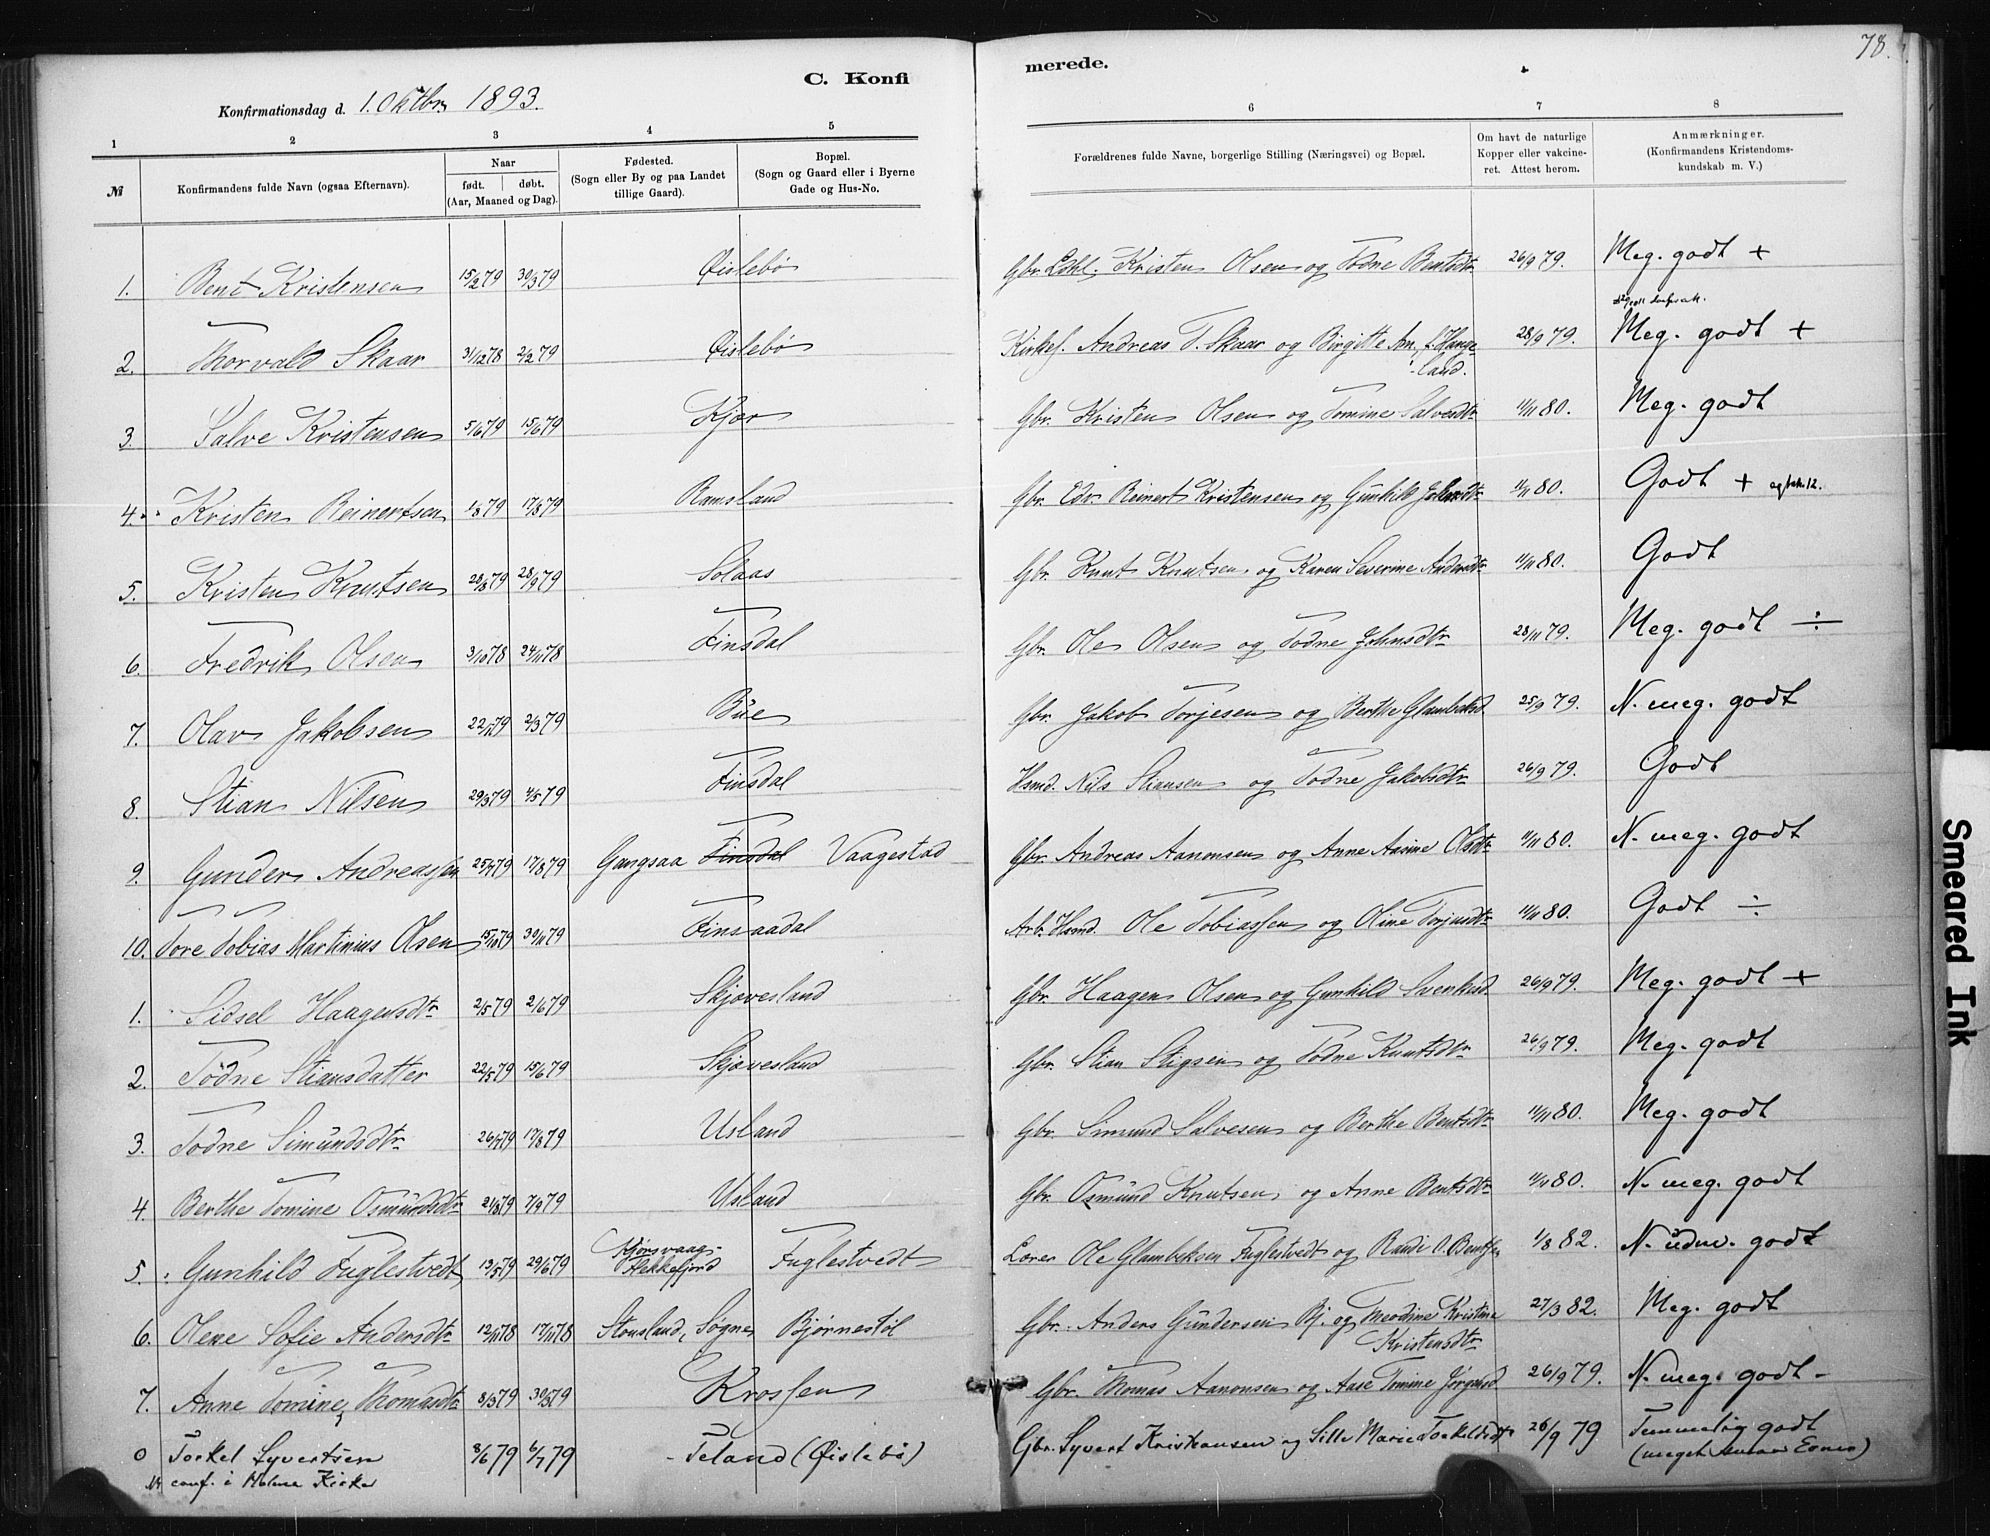 78.
C. Konfi
merede.
Konfirmationsdag d. 1. Oktbr 1893.
1 2 3 4 5 6 7 8
№
Konfirmandens fulde Navn (ogsaa Efternavn).
Naar
født. døbt.
(Aar, Maaned og Dag).
Fødested.
(Sogn eller By og paa Landet
tillige Gaard).
Bopæl.
(Sogn og Gaard eller i Byerne
Gade og Hus-No.
Forældrenes fulde Navne, borgerlige Stilling (Næringsvei) og Bopæl.
Om havt de naturlige
Kopper eller vakcine-
ret. Attest herom.
Anmærkninger.
(Konfirmandens Kristendoms-
kundskab m. V.)
1. Bent Kristensen 15/2 79 30/3 79 Øislebø Gbr. Kristen Olsen og Todne Bentsdtr 26/9 79. Meg. godt +
2. Thorvald Skaar 31/12 78 2/2 79 Øislebø Kirkes. Andreas T. Skaar og Birgitte An. f. Hange-
land. 28/9 79. Meg. godt +
3. Salve Kristensen 5/6 79 15/6 79 Kjær Gbr. Kristen Olsen og Tomine Salvesdtr 11/11 80. Meg. godt
4. Kristen Reinertsen 1/8 79 17/8 79 Ramsland Gbr. Edv. Reinert Kristensen og Gunhild 11/11 80. Godt +
5. Kristen Knutsen 28/8 79 28/9 79 Solaas Gbr. Knut Knutsen og Karen Severine Andersdtr 11/11 80. Godt
6. Fredrik Olsen 3/10 78 24/11 78 Finsdal Gbr. Ole Olsen og Todne Johnsdtr 28/11 79. Meg. godt ÷
7. Olav Jakobsen 22/1 79 2/3 79 Bue Gbr. Jakob Torjesen og Berthe Glambeksd. 25/9 79. N. meg. godt
8. Stian Nilsen 29/3 79 4/5 79 Finsdal Hsmd. Nils Stiansen og Todne Jakobsdtr 26/9 79. Godt
9. Gunder Andreassen 25/7 79 17/8 79 Gangsaa Finsdal Vaagestad Gbr. Andreas Aanonsen og Anne Aasine Olsdtr 11/11 80. N. meg. godt
10. Tore Tobias Martinius Olsen 15/10 79 30/11 79 Finsaadal Arb. Hsmd. Ole Tobiassen og Oline Torjusdtr 11/11 80. Godt ÷
1. Sidsel Haagensdtr 2/5 79 2/6 79 Skjævesland Gbr. Haagen Olsen og Gunhild Svenksd. 26/9 79. Meg. godt +
2. Todne Stiansdatter 22/5 79 15/6 79 Skjævesland Gbr. Stian Stigsen og Todne Knutsdtr 26/9 79. Meg. godt
3. Todne Simundsdtr 26/7 79 17/8 79 Usland Gbr. Simund Salvesen og Berthe Bentsdtr 11/11 80. Meg. godt
4. Berthe Tomine Osmundsdtr 21/8 79 7/9 79 Usland Gbr. Osmund Knutsen og Anne Bentsdtr 11/11 80. N. meg. godt
5. Gunhild Fuglestvedt 13/5 79 29/6 79 Kjørsvaag-
Flekkefjord Fuglestvedt Lærer Ole Glambeksen Fuglestvedt og Randi O. Bentsen 1/8 82. N. udm. godt
6. Olene Sofie Andersdtr 12/11 78 17/11 78 Stousland, Søgne Bjørnestøl Gbr. Anders Gundersen Bj. og Theodine Kristine
Kristensdtr 27/3 82. Meg. godt
7. Anne Tomine Thomasdtr 8/3 79 30/3 79 Krossen Gbr. Thomas Aanonsen og Aase Tomine Jørgensd. 26/9 79. N. meg. godt -
0 Torkel Syvertsen 8/6 79 6/7 79 Teland (Øislebø) Gbr. Syvert Kristiansen og Sille Marie Torkelsdtr 26/9 79 Temmelig godt
conf. i Holme Kirke (meget Evner)
Smeared Ink